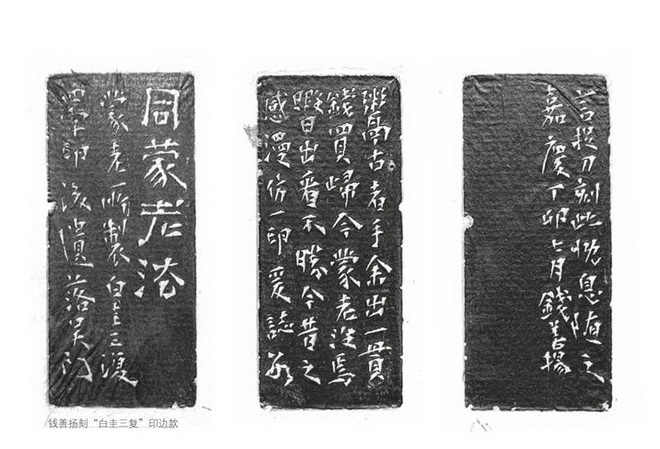 同蒙老法
蒙老所製白圭三復
四字印後遺落吳門
鬻古者手余出一貫
錢買歸今蒙老沒焉
暇日出看不勝今昔之
感漫仿一印爰誌數
言捉刀刻此息隨之
嘉慶丁卯七月錢善揚
钱善扬刻“白圭三复”印边款